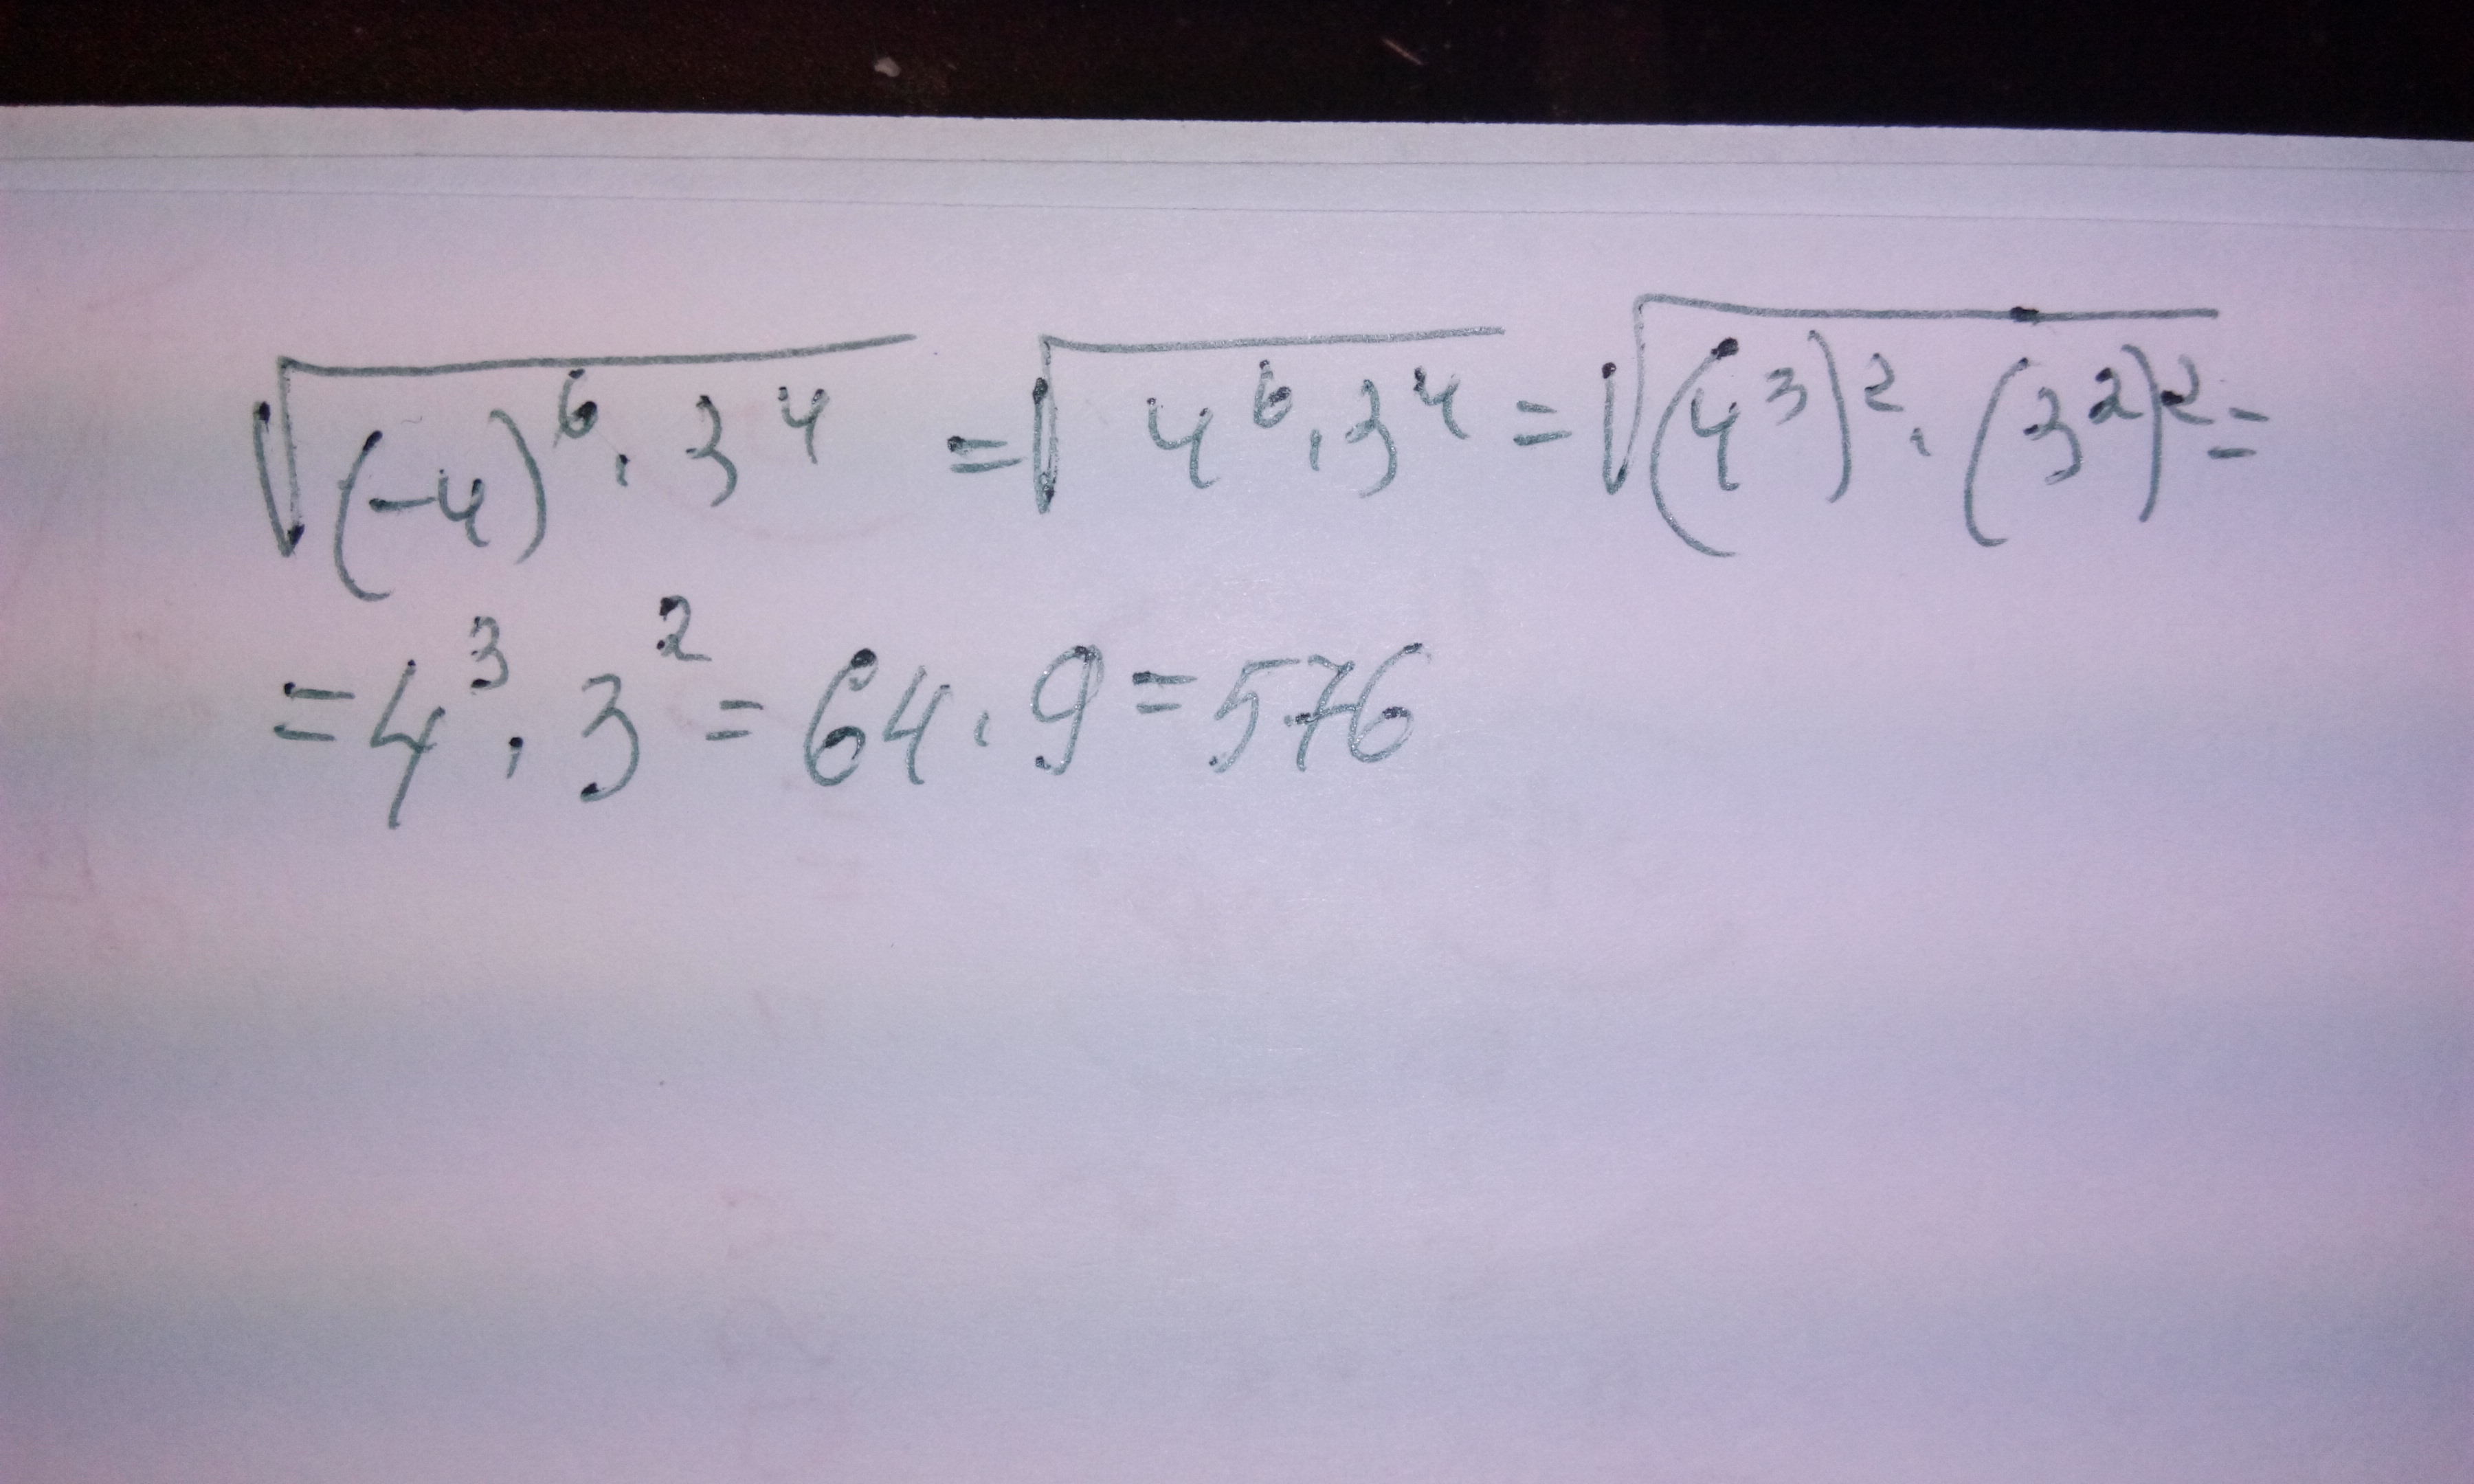 √((-4)⁶ · 3⁴) = √(4⁶ · 3⁴) = √((4³)² · (3²)²) =
= 4³ · 3² = 64 · 9 = 576